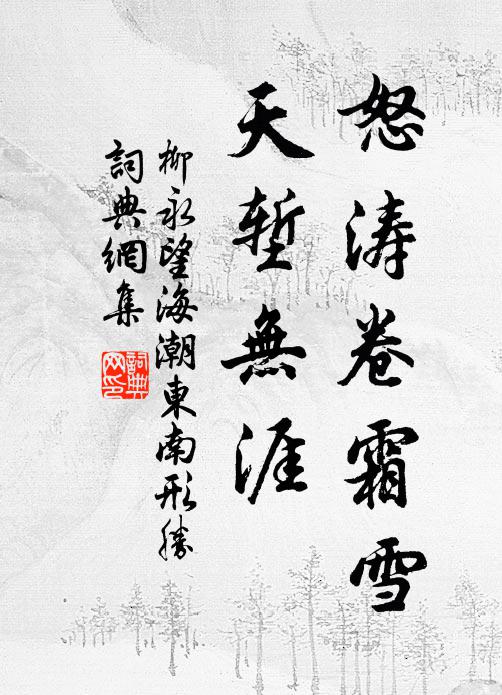 怒涛卷霜雪
天堑無涯
柳永望海潮東南形勝
詞典網集
詞典网印